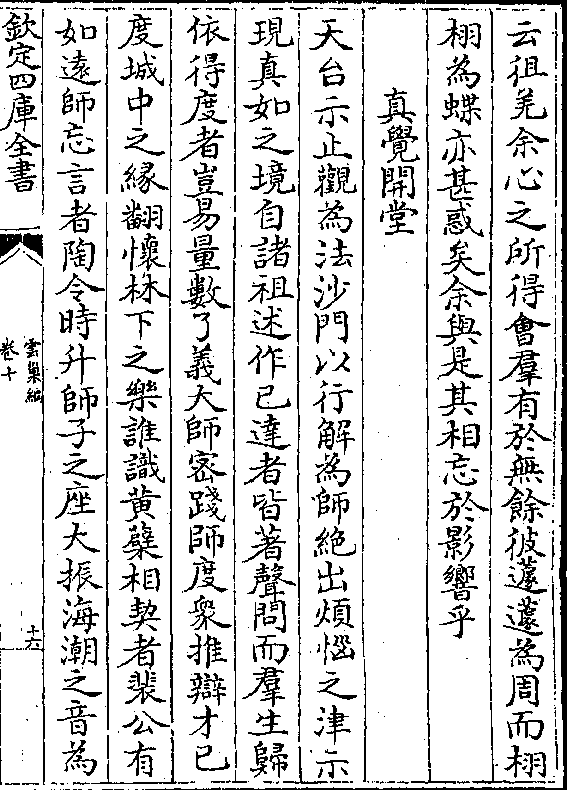 云徂羌余心之所得會羣有於無餘彼蘧蘧為周而栩
栩為蝶亦甚惑矣余與是其相忘於影響乎
真覺開堂
天台示止觀為法沙門以行解為師絶出煩惱之津示
現真如之境自諸祖述作已達者皆著聲問而羣生歸
依得度者豈易量數了義大師密踐師度衆推辯才已
度城中之緣翻懷林下之樂誰識黄蘗相契者裴公有
如遠師忘言者陶令時升師子之座大振海潮之音為
欽定四庫全書
雲巢編
卷十
十六